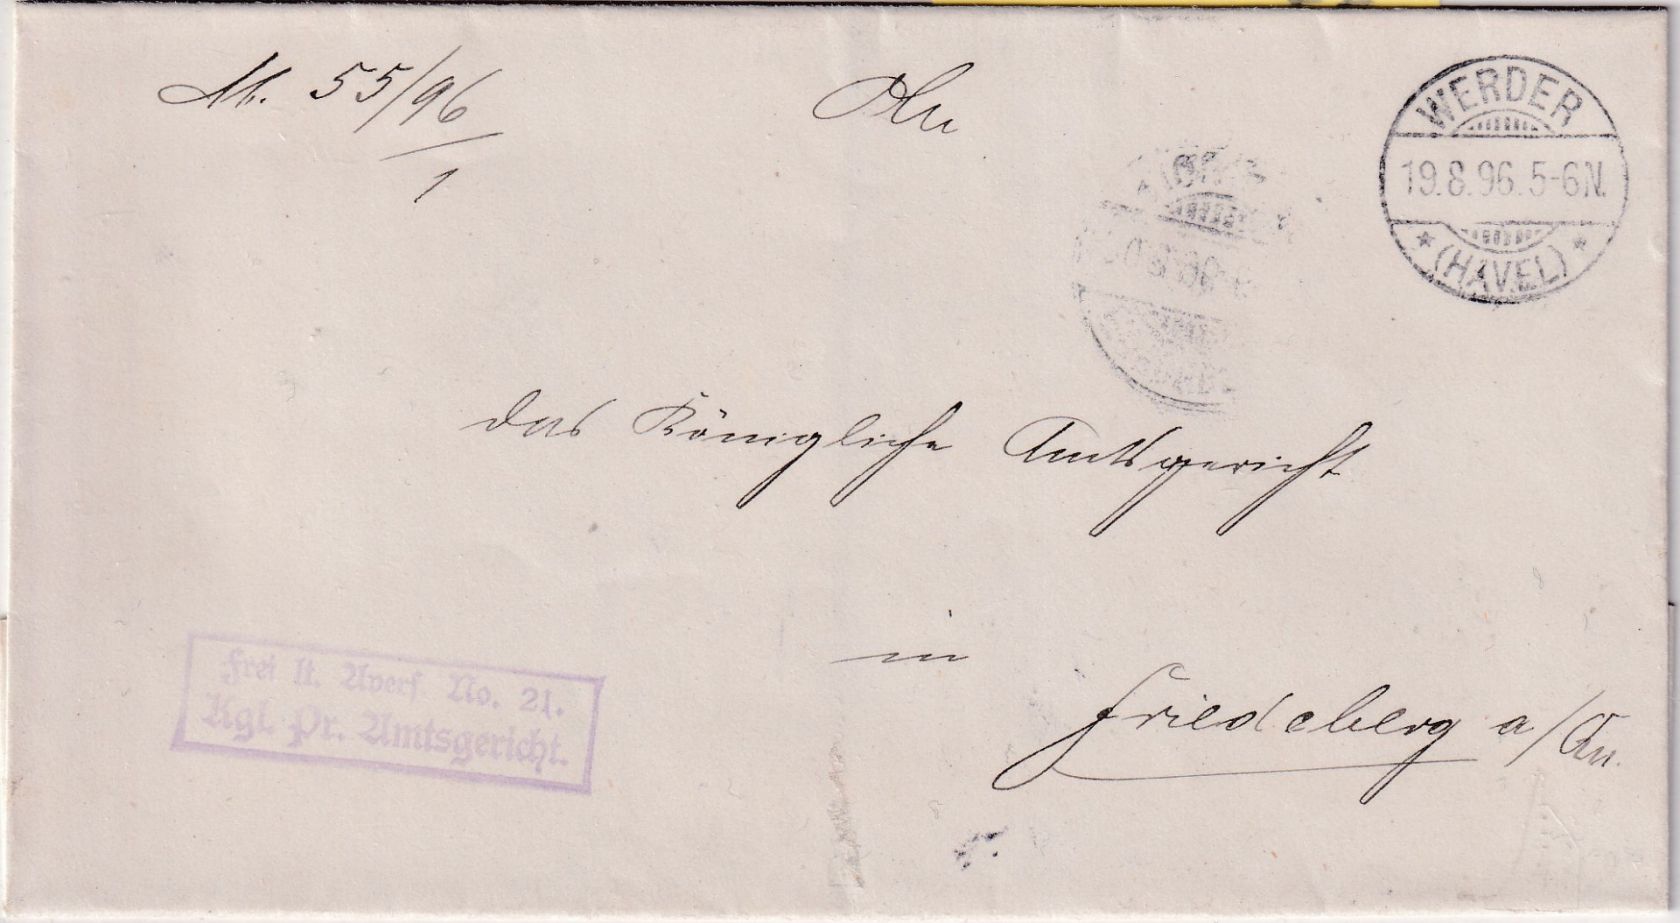 M. 55/96
1
An
WERDER
19.8.96.5-6N.
* (HAVEL) *
das Königliche Amtsgericht
in
Friedeberg a/Qu.
Frei lt. Avers. No. 21.
Kgl. Pr. Amtsgericht.